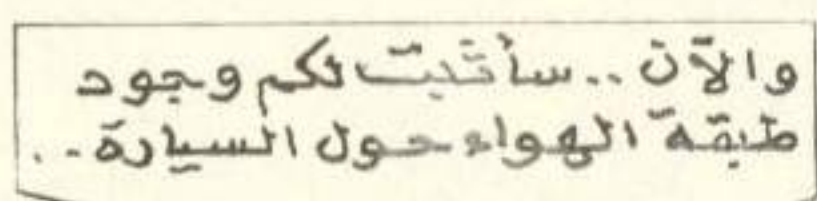 والآن .. سأثبت لكم وجود
طبقة الهواء حول السيارة ..